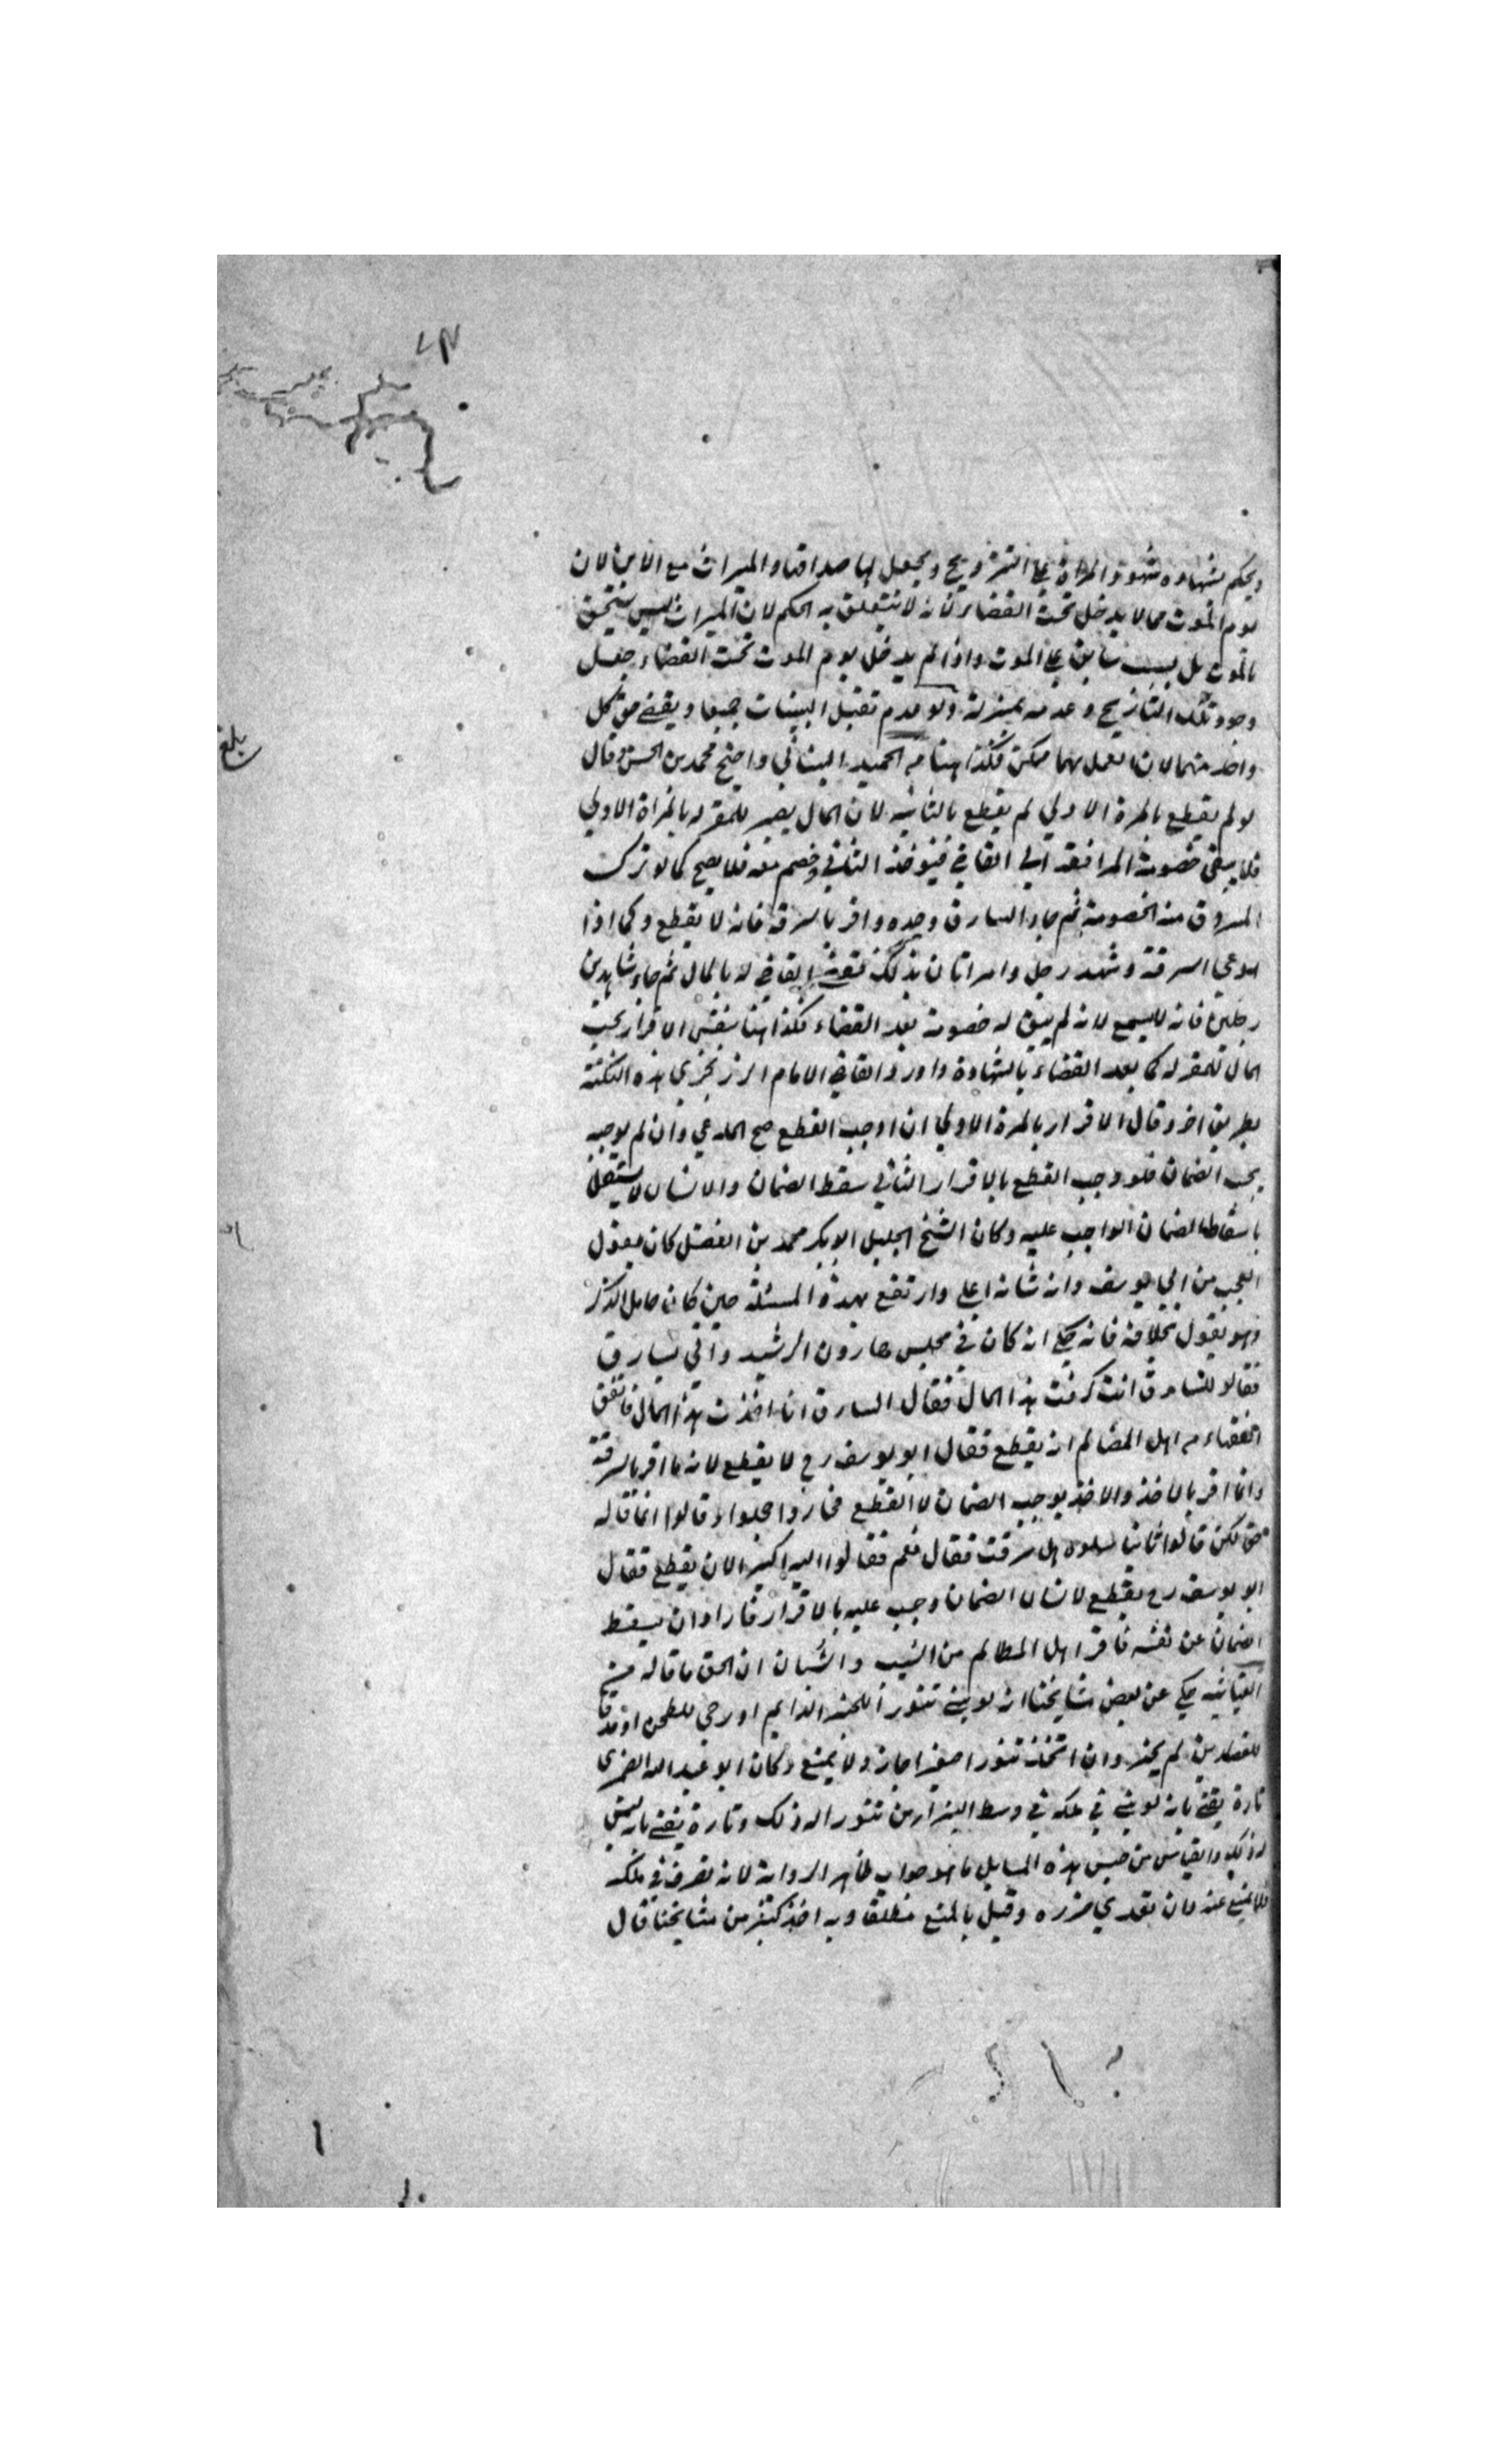 ويحكم بشهادة شهود المراة على التزويج ويجعل لها صداقا والميراث مع الابن لان
يوم الموت مما لا يدخل تحت القضاء لانه لا يتعلق به الحكم لان الميراث ليس يستحق
بالموت بل بسبب سابق على الموت واذا لم يدخل يوم الموت تحت القضاء جعل
وجود تلك التاريخ وعدمه بمنزلة ولو عدم تقبل البينات جميعا ويقضى حق كل
واحد منهما لان العمل بهما ممكن فكذا هنا من الحميد الثاني واحتج محمد بن الحسن وقال
لو لم يقطع بالمرة الاولي لم يقطع بالثانية لان المال يصير للمقر له بالمراة الاولي
فلا يبقى خصومة المرافعة الى القاضي فيؤخذ الثاني وخصم معه فلا يصح كما لو ترك
المسروق منه الخصومة ثم جاء السارق وحده واقر بالسرقة فانه لا يقطع وكما اذا
ادعي السرقة وشهد رجل وامراتان بذلك فقضى القاضي له بالمال ثم جاء شاهدين
رجلين فانه لا يسمع لانه لم يبق له خصومة بعد القضاء فكذا هنا بنفس الاقرار يجب
المال للمقر له كما بعد القضاء بالشهادة واورد القاضي الامام الزرنجري هذه النكتة
بطريق اخر وقال الاقرار بالمرة الاولي ان اوجب القطع صح المدعي وان لم يوجبه
يجب الضمان فلو وجب القطع بالاقرار الثاني سقط الضمان والانسان لا يستقل
باسقاط الضمان الواجب عليه وكان الشيخ الجليل ابو بكر محمد بن الفضل كان يقول
العجب من ابي يوسف وانه شانه اعلى وارتفع بهذه المسئلة حين كان حامل الذكر
وهو يقول بخلافه فانه حكي انه كان في مجلس هارون الرشيد واتي بسارق
فقالو للسارق انت سرقت هذا المال فقال السارق انا اخذت هذا المال فاتفق
الفقهاء من اهل المظالم انه يقطع فقال ابو يوسف رح لا يقطع لانه ما اقر بالسرقة
وانما اقر بالاخذ والاخذ يوجب الضمان لا القطع فحاروا وخجلوا وقالوا انما قاله
حق لكن قالوا ثانيا سلوه هل سرقت فقال نعم فقالوا الله اكبر الان يقطع فقال
ابو يوسف رح يقطع لانسان الضمان وجب عليه بالاقرار فاراد ان يسقط
الضمان عن نفسه فاقر اهل المظالم من الشيب والشبان ان الحق ما قاله من
العتابية حكي عن بعض مشايخنا انه لو بنى تنورا للخبز الدايم او رحي للطحن او مدقا
للقصارين لم يجز وان اتخذ تنورا صغيرا جاز ولا يمنع وكان ابو عبد الله الضمري
تارة يفتي بانه لو بنى في ملكه في وسط البزازين تنورا له ذلك وتارة يفتي بانه ليس
له ذلك والقياس من جنس هذه المسايل ما هو جواب ظاهر الرواية لانه تصرف في ملكه
فلا يمنع عنه وان تعدى ضرره وقيل بالمنع مطلقا وبه اخذ كثير من مشايخنا قال
بلغ